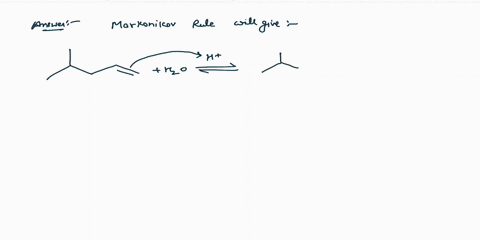 Answer:- Markonikov Rule will give :-
H+
+ H2O